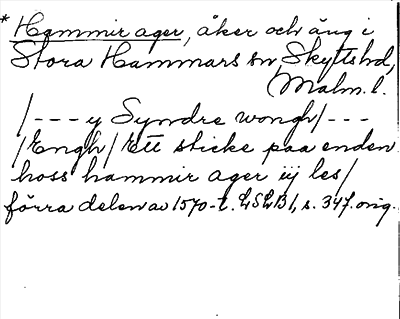 * Hammir ager, åker och äng i
Stora Hammars sn Skytts hd,
Malm. l.
/--- y Syndre wongh/---
/Engh/ Ett sticke paa enden
hoss hammir ager iij les/
förra delen av 1570-t. LSLB 1, s. 347. orig.